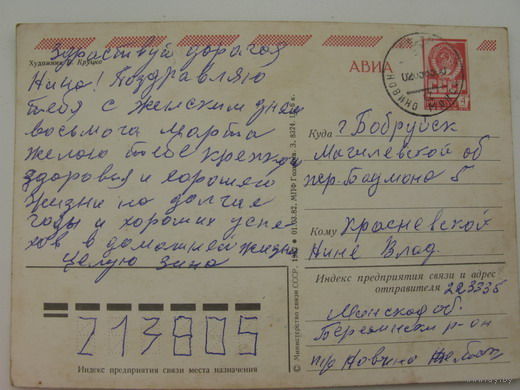 Художник Б. Круцко
Здраствуй дорогая
Нина! Поздравляю
тебя с женским днем
восьмога Марта
желаю тебе крепкага
здоровия и хорошего
жизни на долгие
годы и хороших успе-
хов в домашней жизни
целую Зина
АВИА
Куда г. Бобруйск
Магилевской об
пер. Баумана 5
Кому Красневской
Нине Влад.
Индекс предприятия связи и адрес
отправителя 223335
Минская об.
Березински р-он
© Министерство связи СССР. 01.03.82. МПФ Гознака. З.
213805
Индекс предприятия связи места назначения